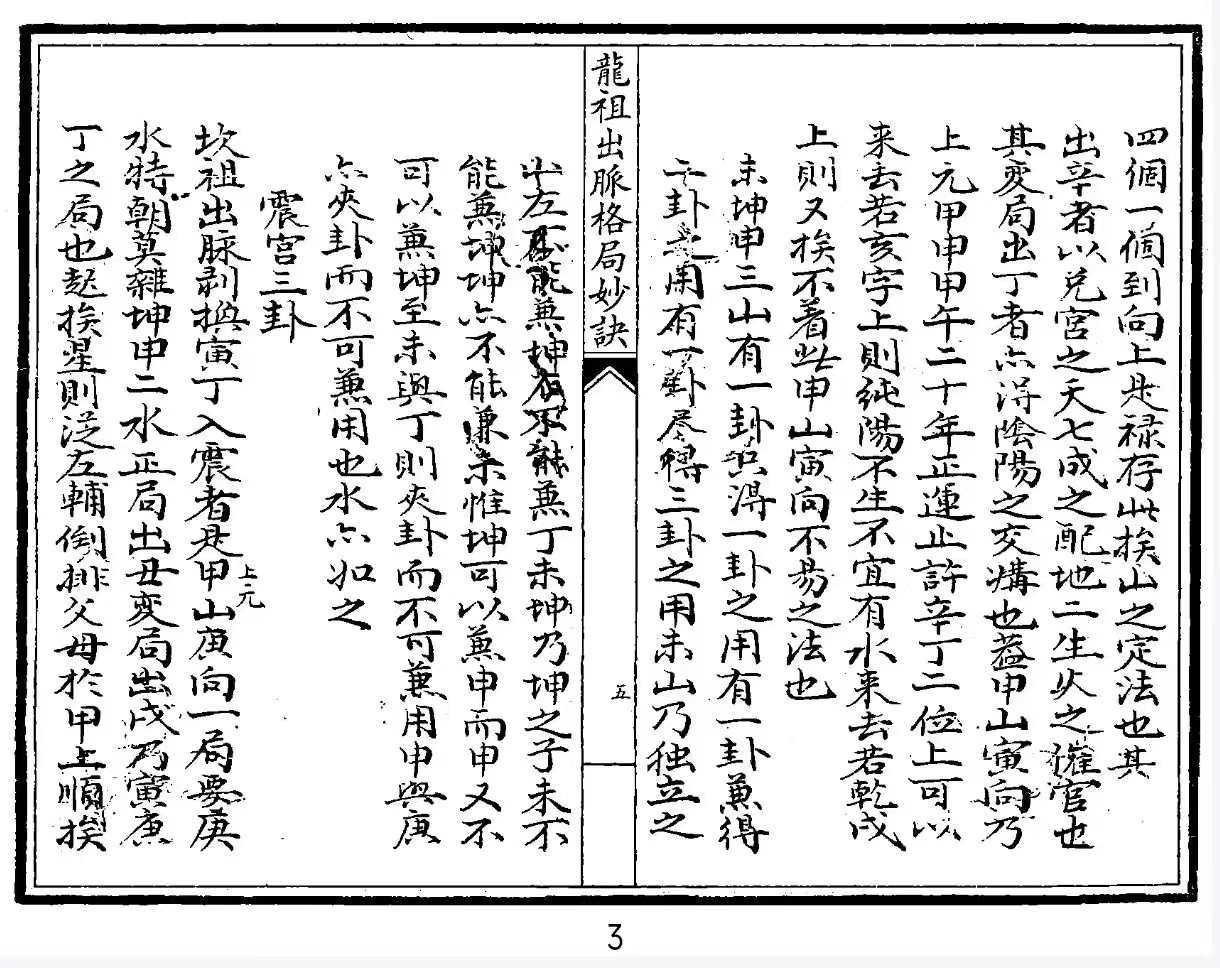 四個一個到向上是禄存此挨山之定法也其
出辛者以兌宮之天七成之配地二生火之催官也
其変局出丁者亦得陰陽之交媾也蓋申山寅向乃
上元甲申甲午二十年正運止許辛丁二位上可以
来去若亥字上則純陽不生不宜有水来去若乾戌
上則又挨不着此申山寅向不易之法也
未坤申三山有一卦只得一卦之用有一卦兼得
二卦之用有一卦尽得三卦之用未山乃独立之
左不能兼坤右不能兼丁未坤乃坤之子未不
能兼坤坤亦不能兼未惟坤可以兼申而申又不
可以兼坤至未與丁則夾卦而不可兼用申與庚
亦夾卦而不可兼用也水亦如之
震宮三卦
坎祖出脉剥換寅丁入震者是甲山庚向一局要庚
上元
水特朝莫雜坤申二水正局出丑変局出戌乃寅庚
丁之局也起挨星則從左輔倒排父母於甲上順挨
龍祖出脈格局妙訣
五
3